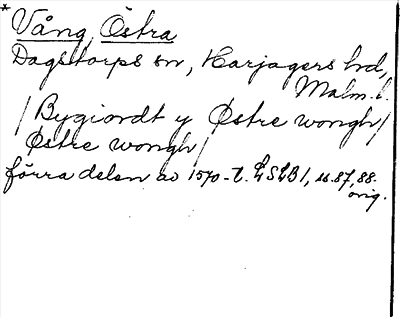 * Vång, Östra
Dagstorps sn, Harjagers hd,
Malm. l.
/ Bygiordt y Østre wongh /
Østre wongh /
förra delen av 1570-t. LSLB 1, s. 87, 88.
orig.